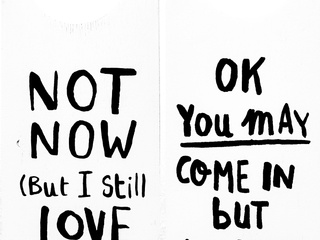 NOT
NOW
(But I Still
LOVE
OK
You MAY
COME IN
but